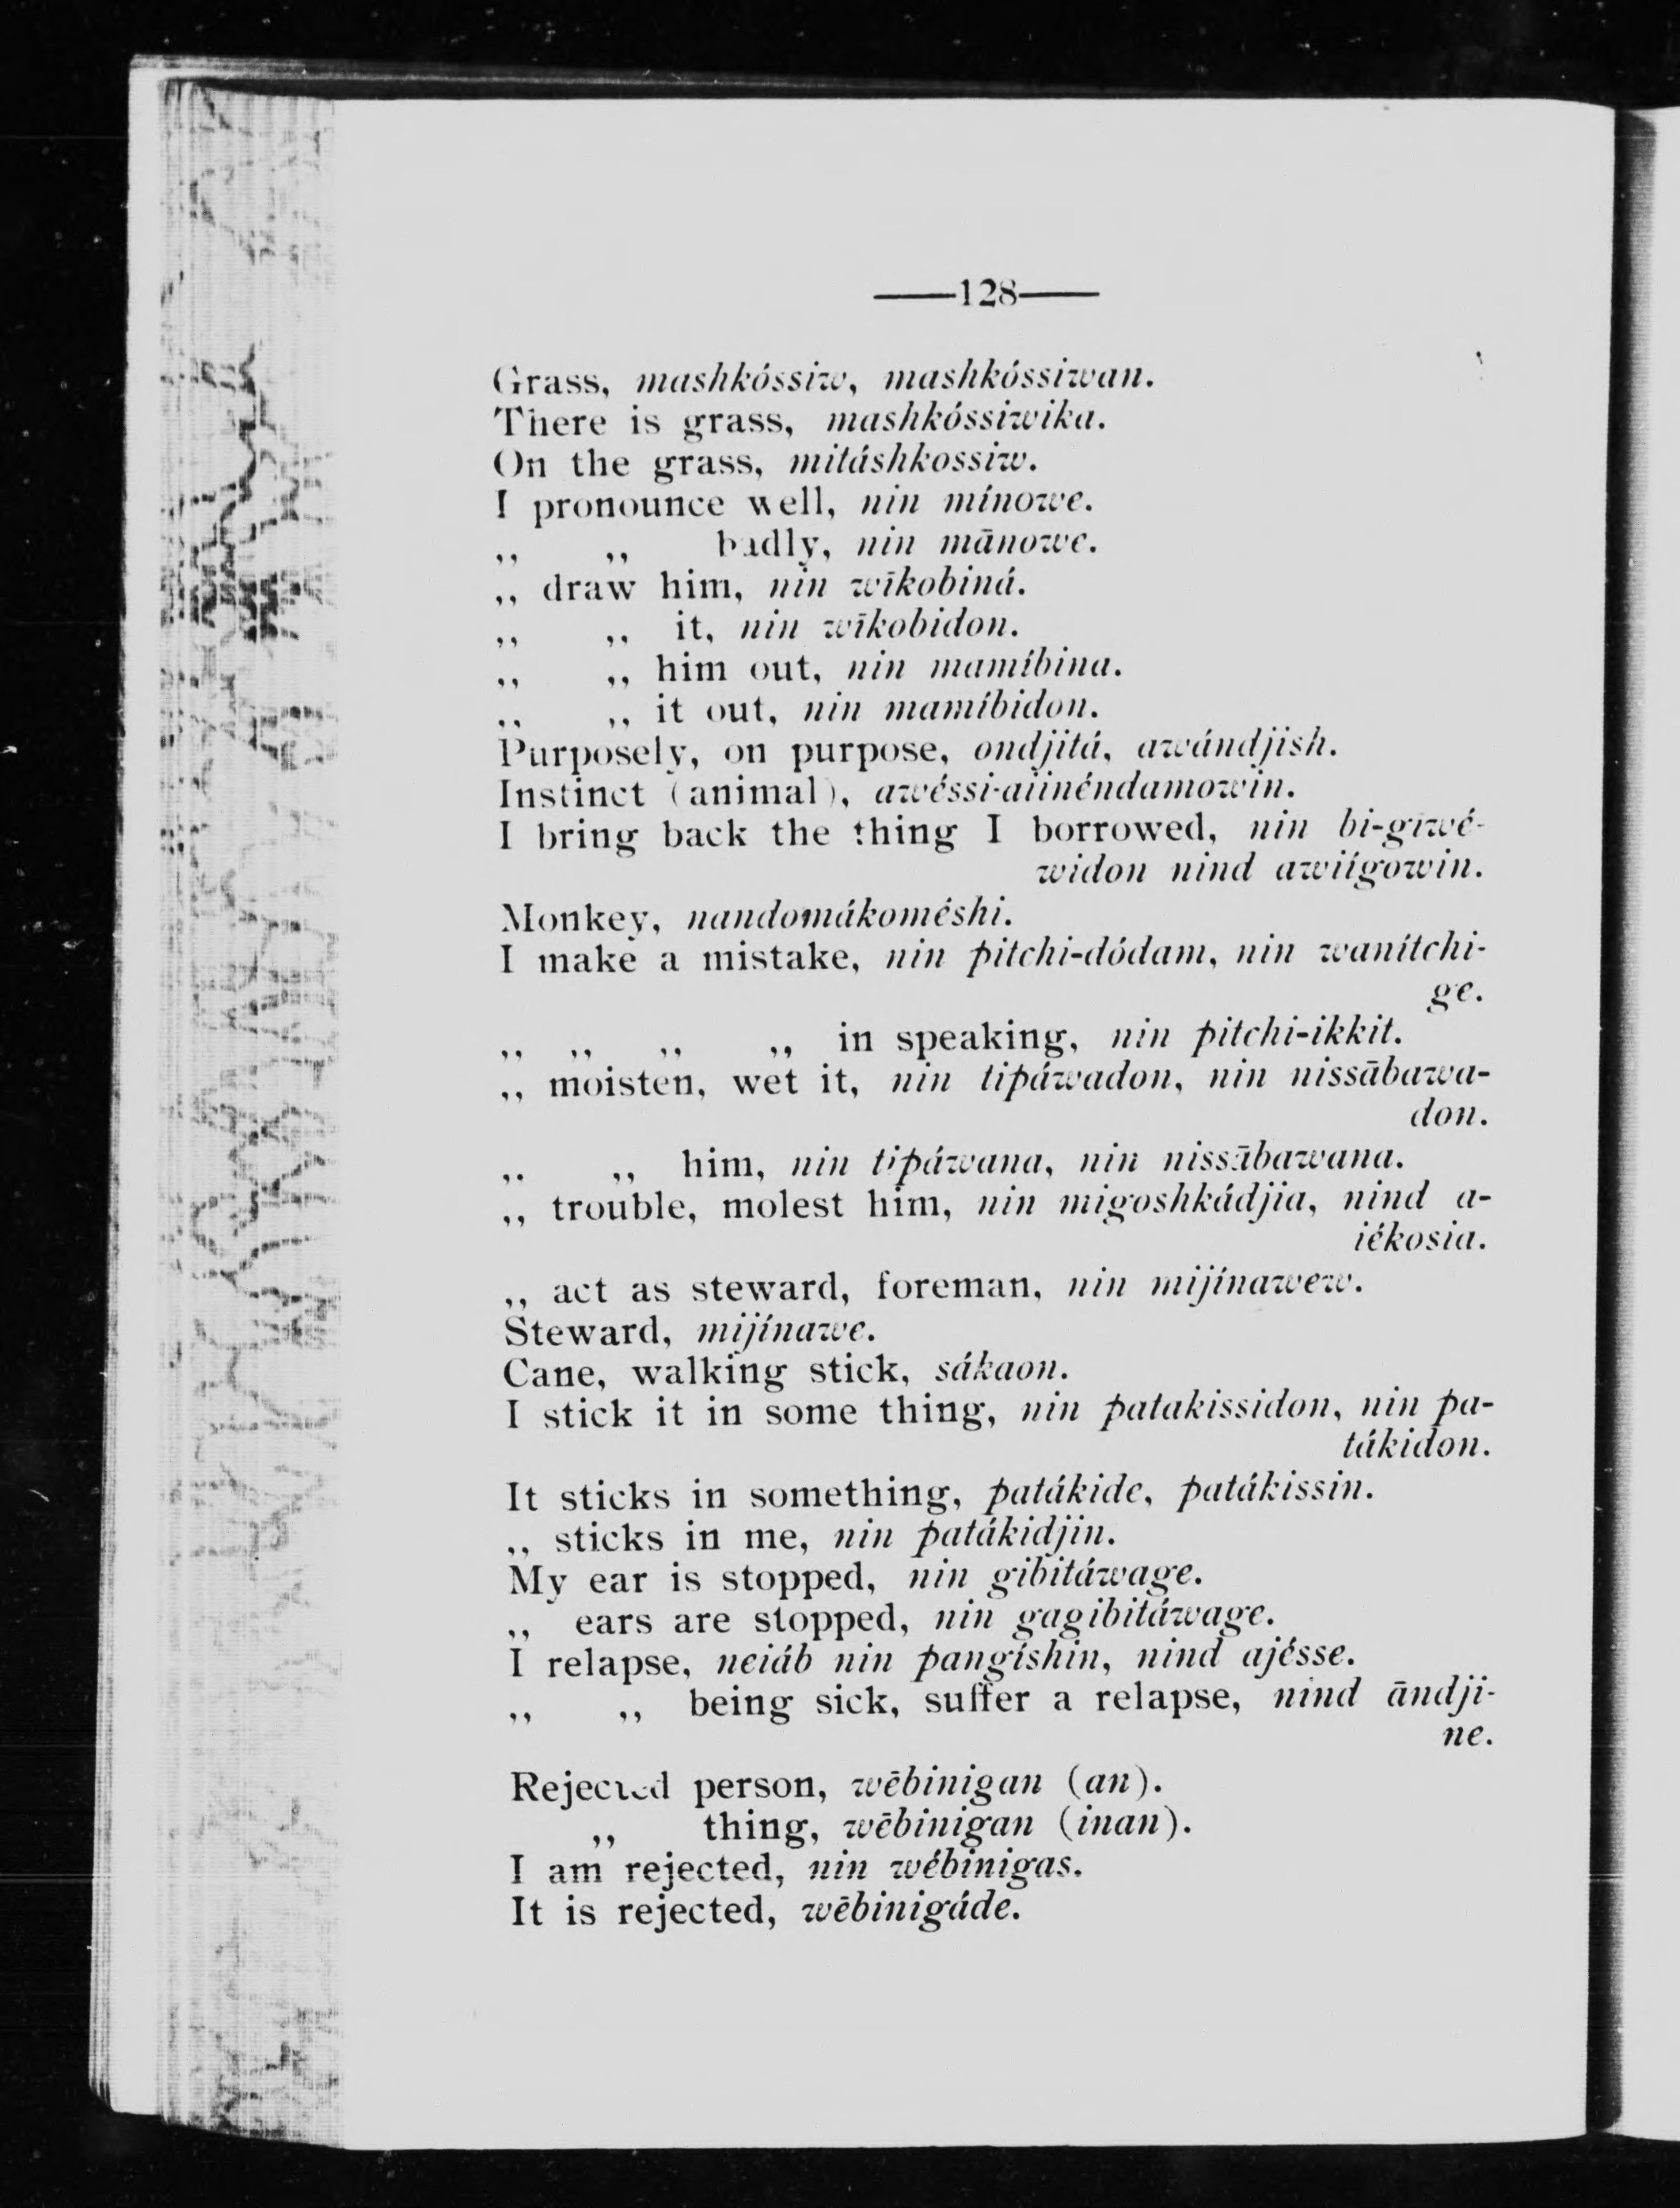 ——128——
Grass, mashkóssiw, mashkóssiwan.
There is grass, mashkóssiwika.
On the grass, mitáshkossiw.
I pronounce well, nin mínowe.
,, ,, badly, nin mānowe.
,, draw him, nin wīkobiná.
,, ,, it, nin wīkobidon.
,, ,, him out, nin mamíbina.
,, ,, it out, nin mamíbidon.
Purposely, on purpose, ondjitá, awándjish.
Instinct (animal), awéssi-aiinéndamowin.
I bring back the thing I borrowed, nin bi-giwé-
widon nind awiígowin.
Monkey, nandomákoméshi.
I make a mistake, nin pitchi-dódam, nin wanítchi-
ge.
,, ,, ,, ,, in speaking, nin pitchi-ikkit.
,, moisten, wet it, nin tipáwadon, nin nissābawa-
don.
,, ,, him, nin tipáwana, nin nissābawana.
,, trouble, molest him, nin migoshkádjia, nind a-
iékosia.
,, act as steward, foreman, nin mijínawew.
Steward, mijínawe.
Cane, walking stick, sákaon.
I stick it in some thing, nin patakissidon, nin pa-
tákidon.
It sticks in something, patákide, patákissin.
,, sticks in me, nin patákidjin.
My ear is stopped, nin gibitáwage.
,, ears are stopped, nin gagibitáwage.
I relapse, neiáb nin pangíshin, nind ajésse.
,, ,, being sick, suffer a relapse, nind āndji-
ne.
Rejected person, wēbinigan (an).
,, thing, wēbinigan (inan).
I am rejected, nin wébinigas.
It is rejected, wēbinigáde.